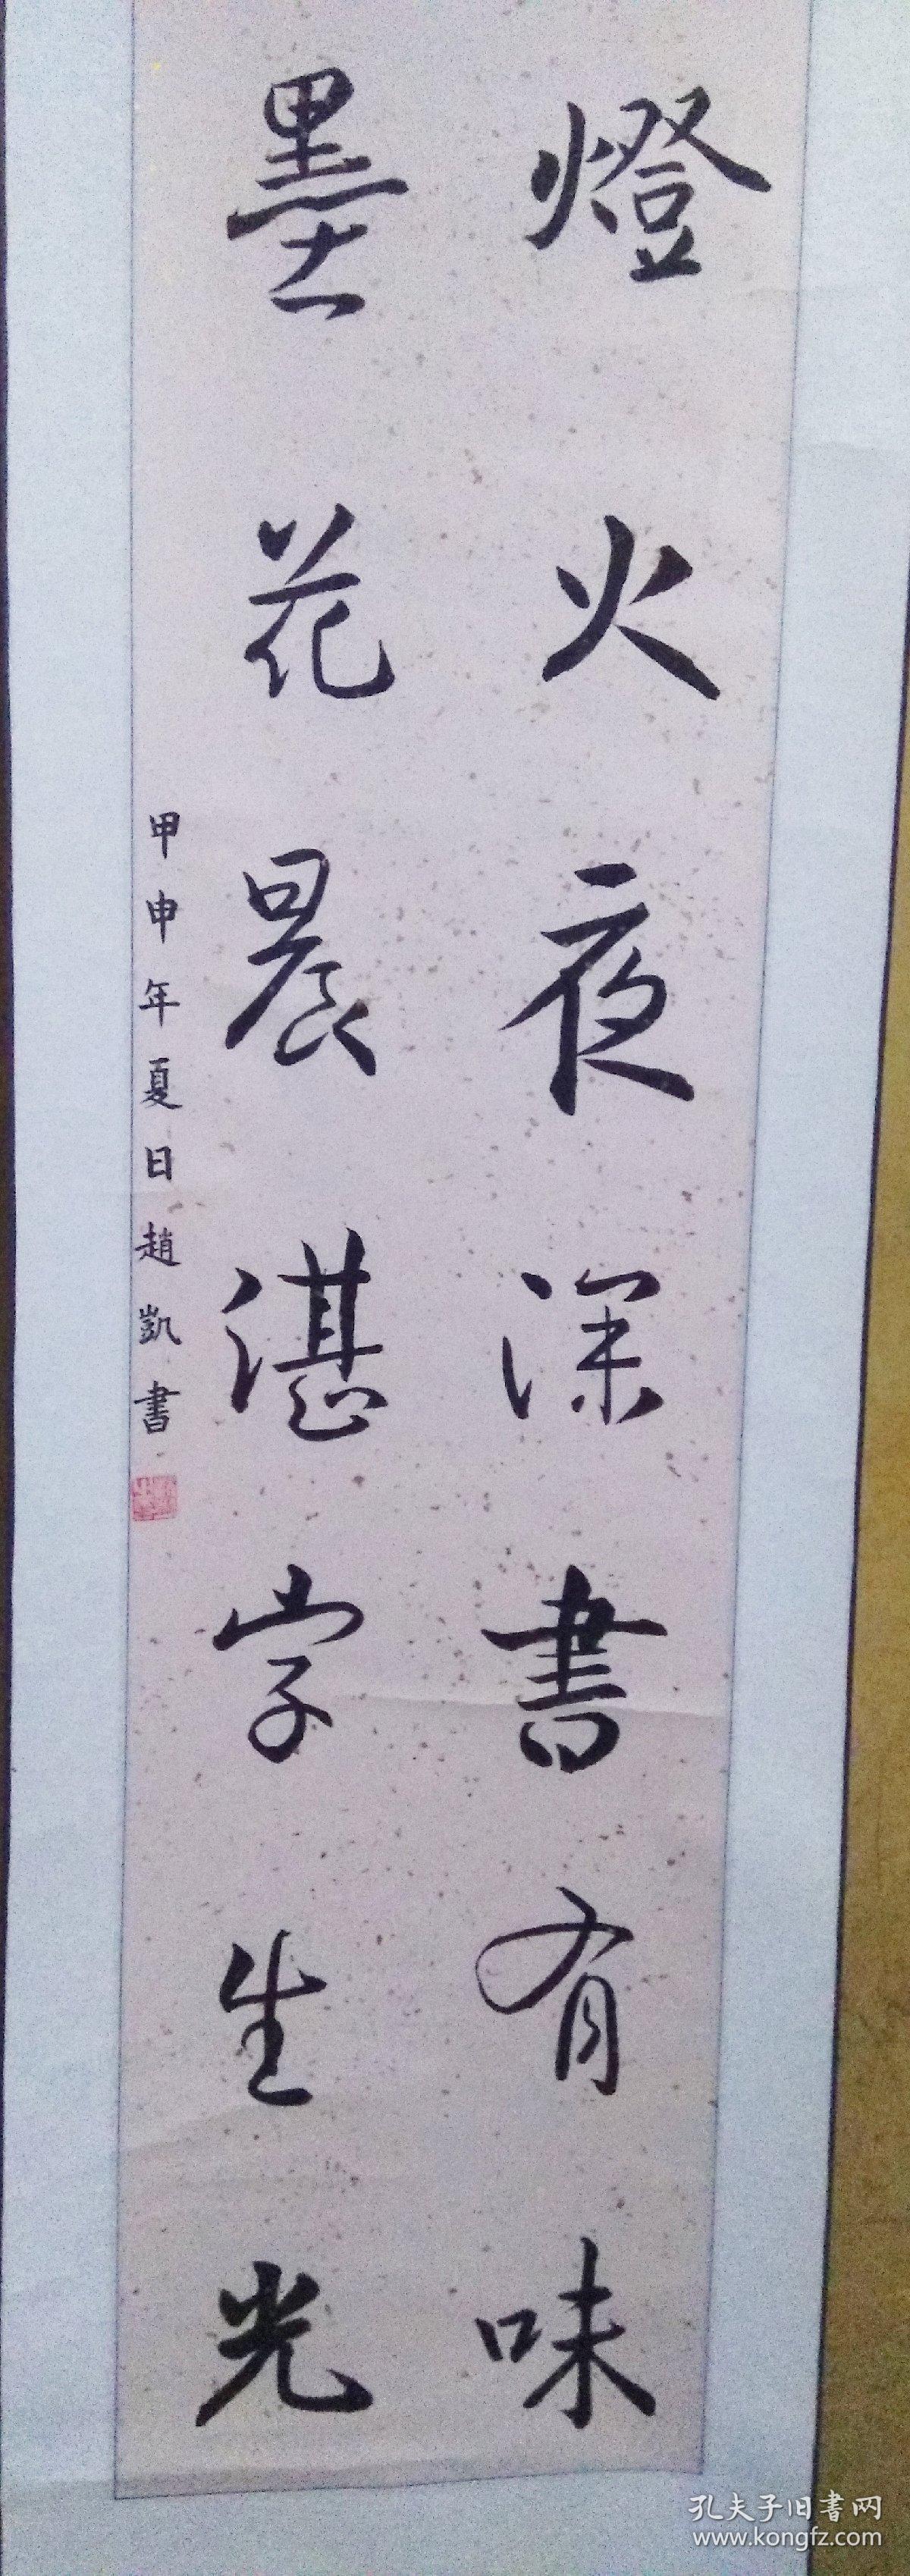 燈火夜深書有味
墨花晨湛字生光
甲申年夏日趙凱書
孔夫子旧書网
www.kongfz.com